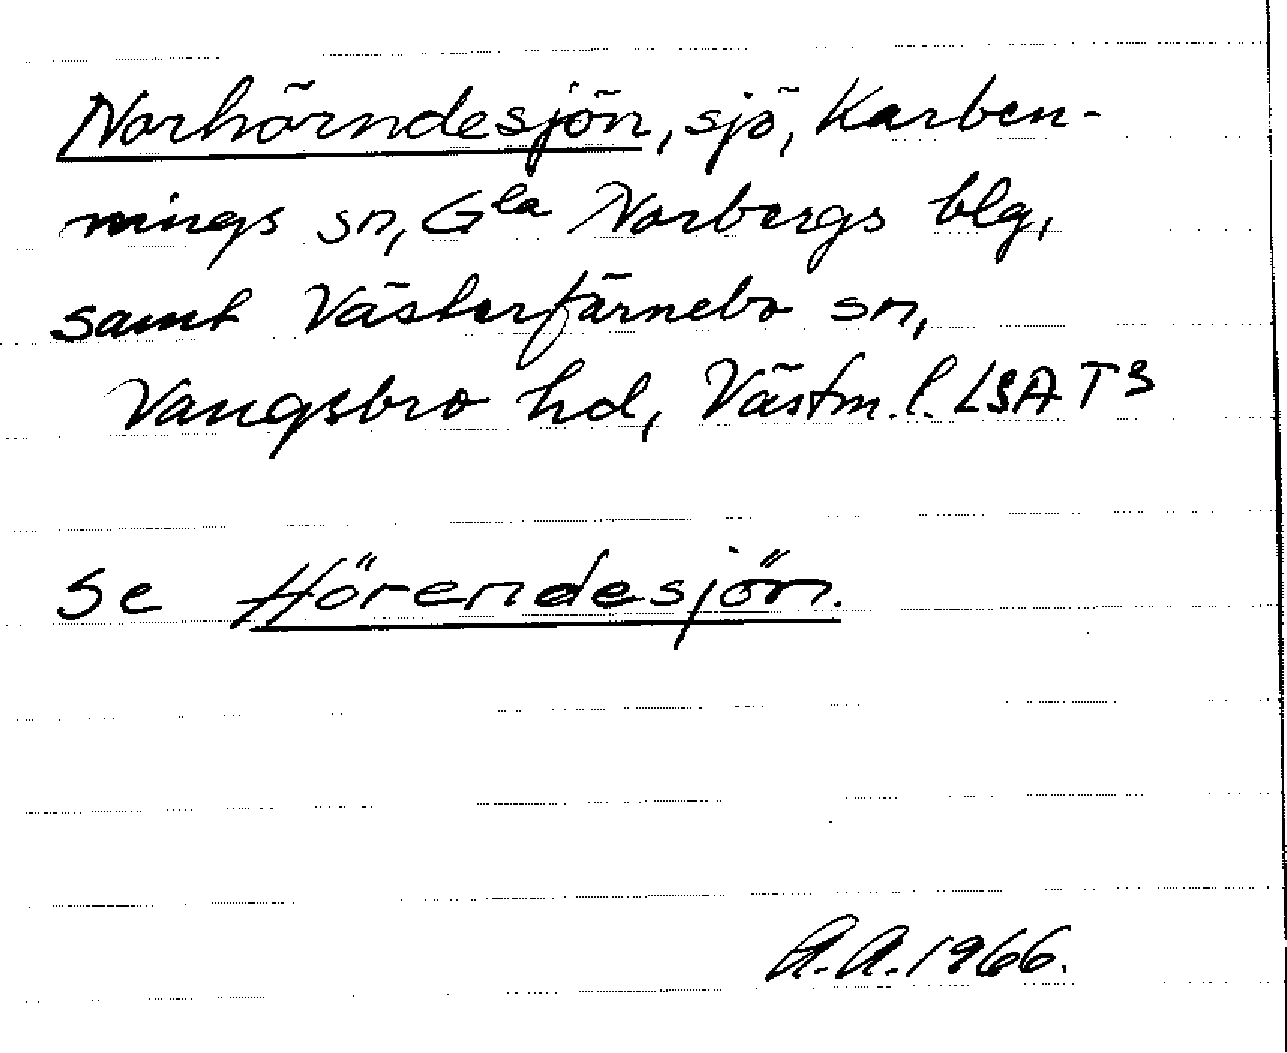 Norhörndesjön, sjö, Karben-
nings sn, Gla Norbergs blg,
samt Västerfärnebo sn,
Vangsbro hd, Västm. l. LSA T3
Se Hörendesjön.
A.A. 1966.